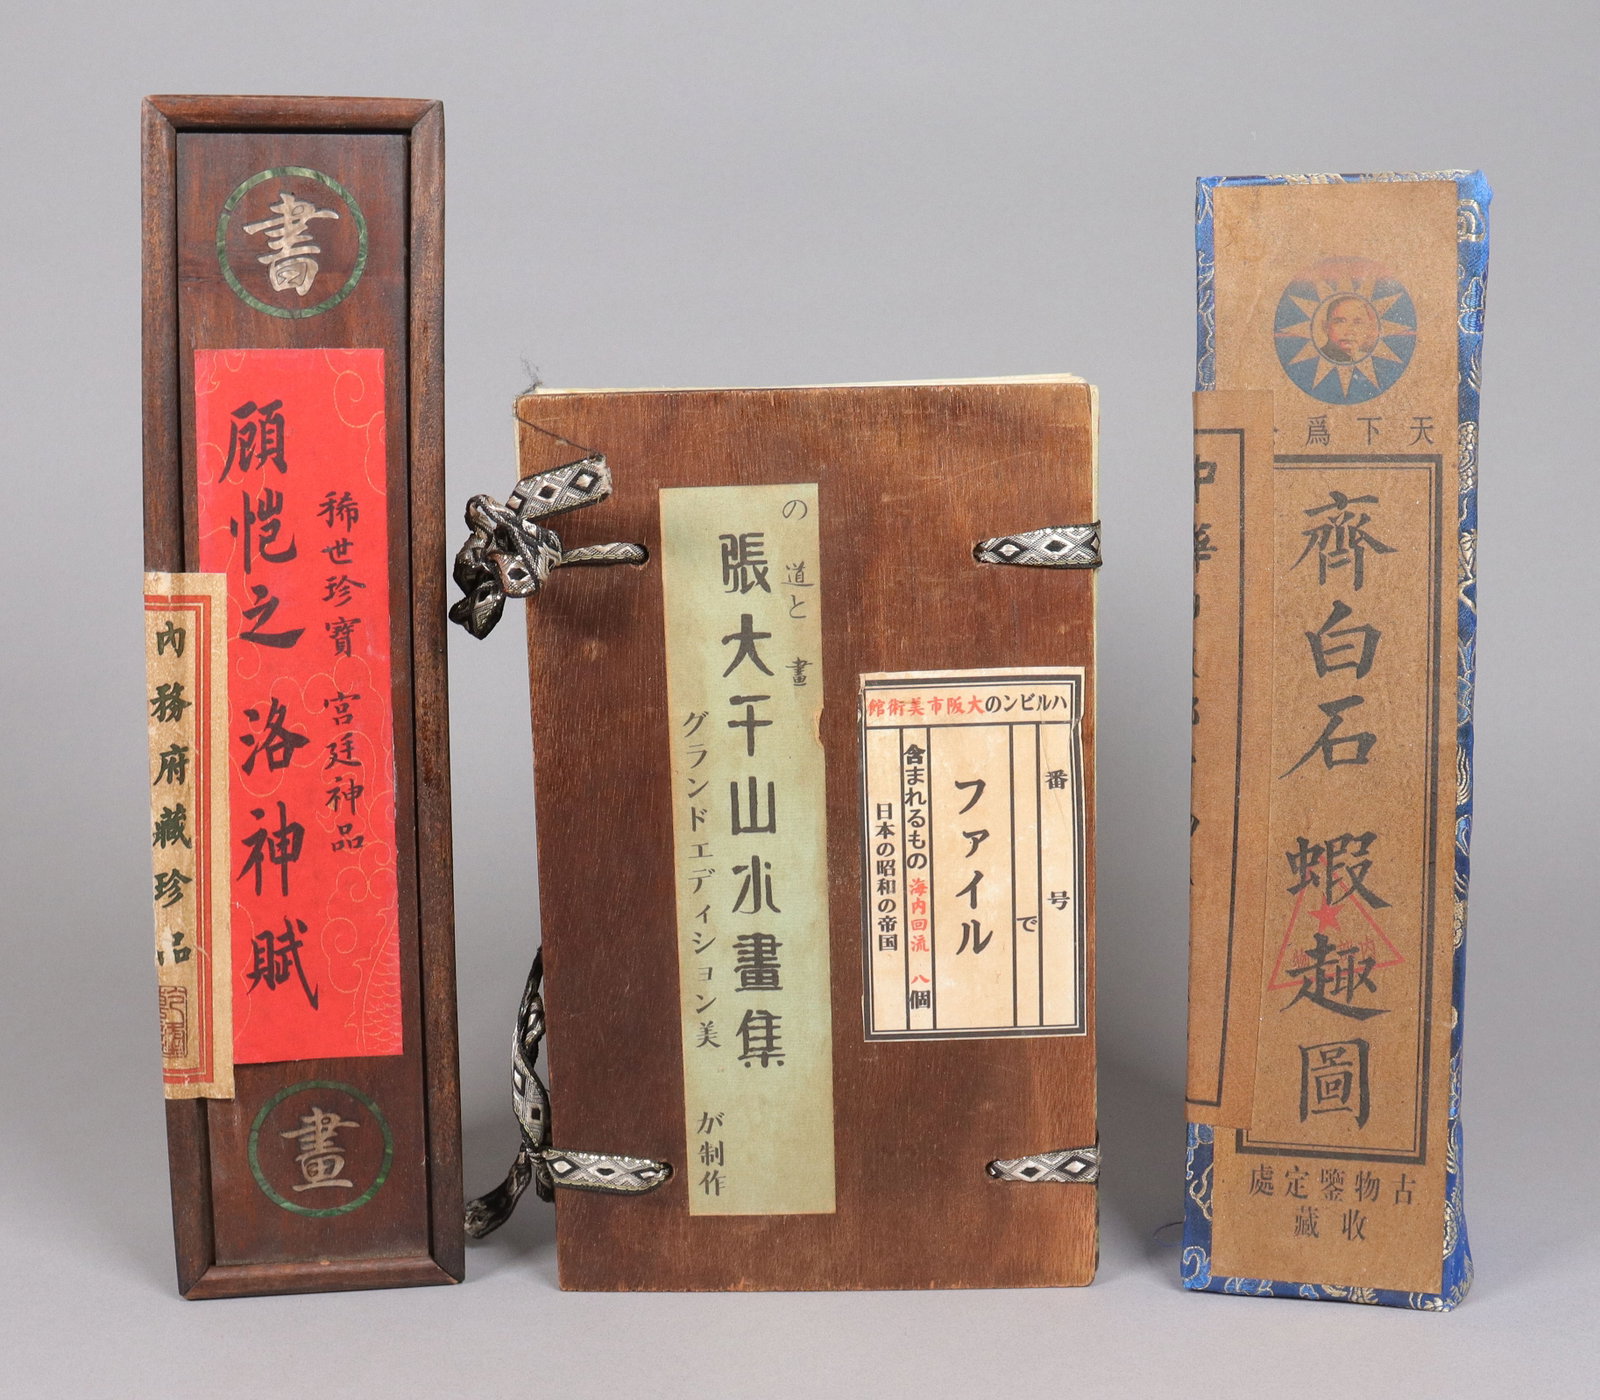 書
顾恺之 洛神賦
稀世珍寶 宮廷神品
內務府藏珍品
畫
の 道と 畫
張大千山水畫集
グランドエディション美 が制作
ハルビンの大阪市美術館
番号
で
ファイル
含まれるもの 海内回流 八個
日本の昭和の帝国
天下爲
齊白石 蝦趣圖
中華
古物鑒定處
收藏